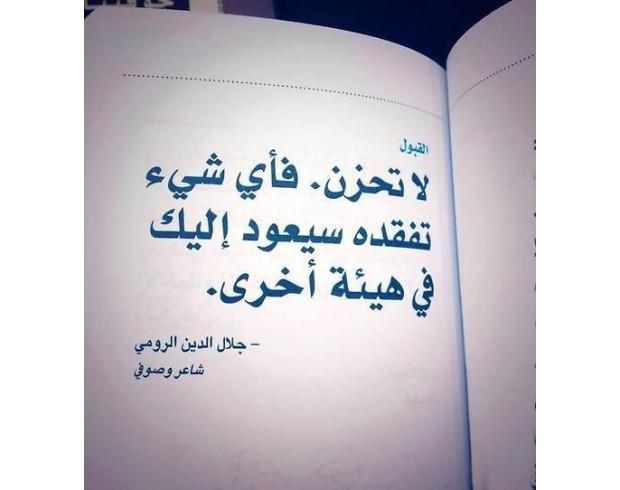 القبول
لا تحزن. فأي شيء
تفقده سيعود إليك
في هيئة أخرى.
– جلال الدين الرومي
شاعر وصوفي